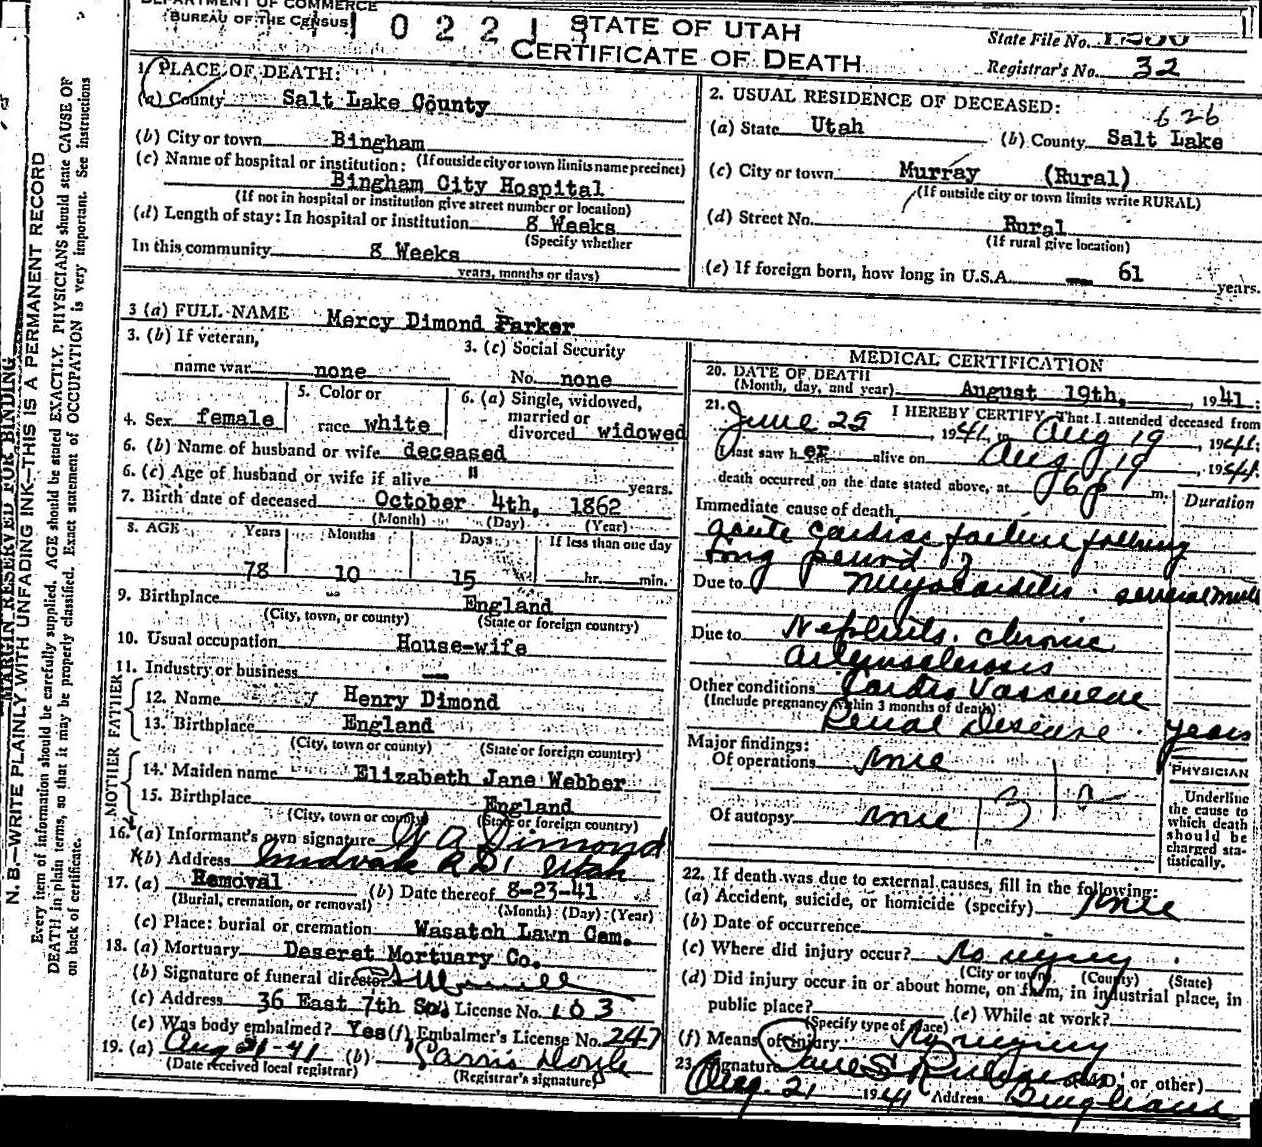 DEPARTMENT OF COMMERCE
BUREAU OF THE CENSUS
1 0 2 2 1
STATE OF UTAH
CERTIFICATE OF DEATH
State File No.
Registrar's No. 32
MARGIN RESERVED FOR BINDING
N. B.—WRITE PLAINLY WITH UNFADING INK—THIS IS A PERMANENT RECORD
Every item of information should be carefully supplied. AGE should be stated EXACTLY. PHYSICIANS should state CAUSE OF
DEATH in plain terms, so that it may be properly classified. Exact statement of OCCUPATION is very important. See instructions
on back of certificate.
1. PLACE OF DEATH:
(a) County Salt Lake County
(b) City or town Bingham
(If outside city or town limits name precinct)
(c) Name of hospital or institution:
Bingham City Hospital
(If not in hospital or institution give street number or location)
(d) Length of stay: In hospital or institution 8 Weeks
(Specify whether
In this community 8 Weeks
years, months or days)
2. USUAL RESIDENCE OF DECEASED:
626
(a) State Utah (b) County Salt Lake
(c) City or town Murray (Rural)
(If outside city or town limits write RURAL)
(d) Street No. Rural
(If rural give location)
(e) If foreign born, how long in U.S.A. 61 years.
3 (a) FULL NAME Mercy Dimond Parker
3. (b) If veteran,
name war none
3. (c) Social Security
No. none
4. Sex female
5. Color or
race white
6. (a) Single, widowed,
married or
divorced widowed
6. (b) Name of husband or wife deceased
6. (c) Age of husband or wife if alive " years.
7. Birth date of deceased October 4th, 1862
(Month) (Day) (Year)
8. AGE Years Months Days If less than one day
78 10 15 hr. min.
9. Birthplace England
(City, town, or county) (State or foreign country)
10. Usual occupation House-wife
11. Industry or business
FATHER
12. Name Henry Dimond
13. Birthplace England
(City, town or county) (State or foreign country)
MOTHER
14. Maiden name Elizabeth Jane Webber
15. Birthplace England
(City, town or county) (State or foreign country)
16. (a) Informant's own signature W A Dimond
(b) Address Midvale R D 1 Utah
17. (a) Removal (b) Date thereof 8-23-41
(Burial, cremation, or removal) (Month) (Day) (Year)
(c) Place: burial or cremation Wasatch Lawn Cem.
18. (a) Mortuary Deseret Mortuary Co.
(b) Signature of funeral director
(c) Address 36 East 7th So. License No. 103
(e) Was body embalmed? Yes (f) Embalmer's License No. 247
19. (a) Aug 21-41 (b) Doyle
(Date received local registrar) (Registrar's signature)
MEDICAL CERTIFICATION
20. DATE OF DEATH
(Month, day, and year) August 19th, 1941.
21. I HEREBY CERTIFY That I attended deceased from
June 25 1941 to Aug 19 1941.
I last saw her alive on Aug 19, 1941.
death occurred on the date stated above, at 6 P m.
Duration
Immediate cause of death
acute cardiac failure following
long period of
Due to Myocarditis several months
Due to Nephritis, chronic
Arteriosclerosis
Other conditions Cardio Vascular
(Include pregnancy within 3 months of death)
Renal Disease. years
Major findings:
Of operations none
Of autopsy none
PHYSICIAN
Underline
the cause to
which death
should be
charged sta-
tistically.
22. If death was due to external causes, fill in the following:
(a) Accident, suicide, or homicide (specify) None
(b) Date of occurrence
(c) Where did injury occur? No injury
(City or town) (County) (State)
(d) Did injury occur in or about home, on farm, in industrial place, in
public place? (e) While at work?
(Specify type of place)
(f) Means of injury No injury
23. Signature Paul S. (M.D. or other)
Aug. 21 1941 Address Bingham